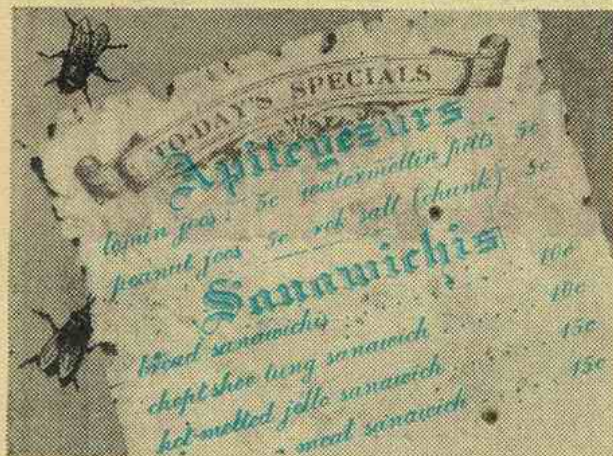 TO-DAY'S SPECIALS
Apiteyezurs
lemin joos: 5c watermellin pitts 5c
peanut joos 5c rok salt (chunk) 5c
Sanawichis
bread sanawichis 10c
chopt shoe tung sanawich 10c
hot-melted jello sanawich 15c
meat sanawich 15c